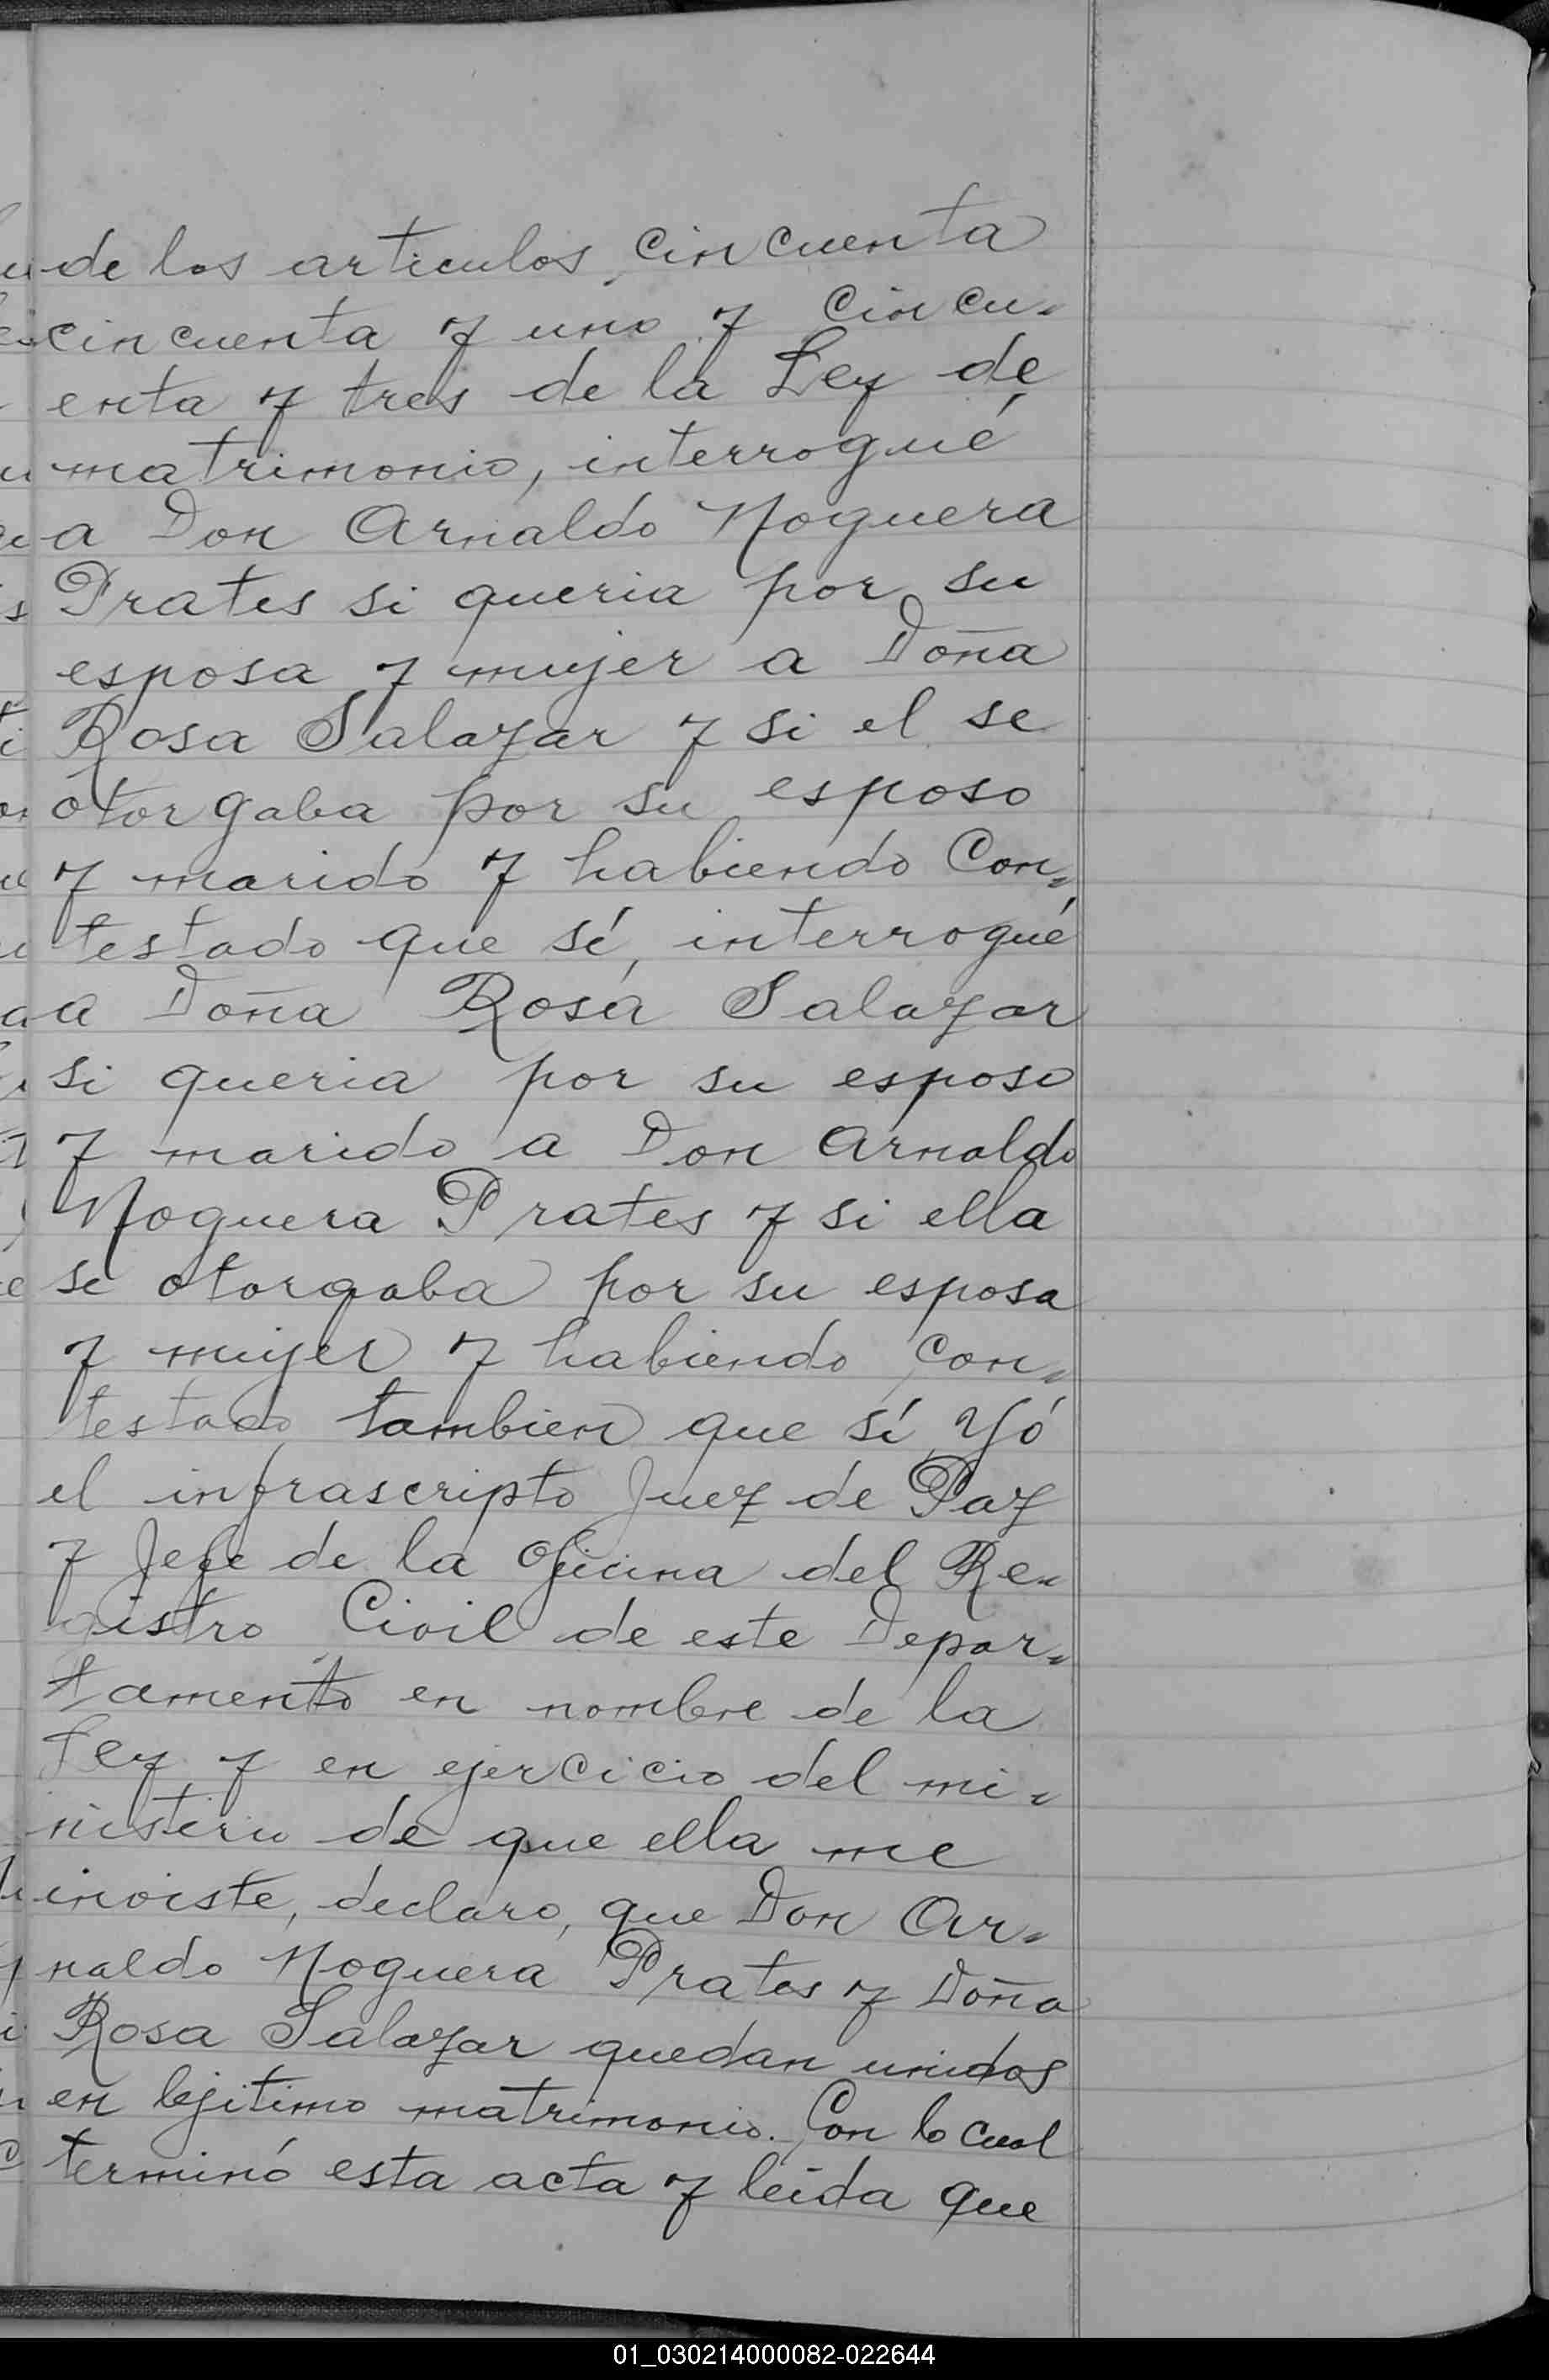 de los articulos, cincuenta
cincuenta y uno y cincu-
enta y tres de la Ley de
matrimonio, interrogué
a Don Arnaldo Noguera
Prates si queria por su
esposa y mujer a Doña
Rosa Salazar y si el se
otorgaba por su esposo
y marido y habiendo Con-
testado que sí, interrogué
a Doña Rosa Salazar
si queria por su esposo
y marido a Don Arnaldo
Noguera Prates y si ella
se otorgaba por su esposa
y mujer y habiendo con-
testado tambien que sí, Yó
el infrascripto Juez de Paz
y Jefe de la Oficina del Re-
gistro Civil de este Depar-
tamento en nombre de la
Ley y en ejercicio del mi-
nisterio de que ella me
inviste, declaro, que Don Ar-
naldo Noguera Prates y Doña
Rosa Salazar quedan unidos
en lejitimo matrimonio. Con lo cual
terminó esta acta y leida que
01_030214000082-022644